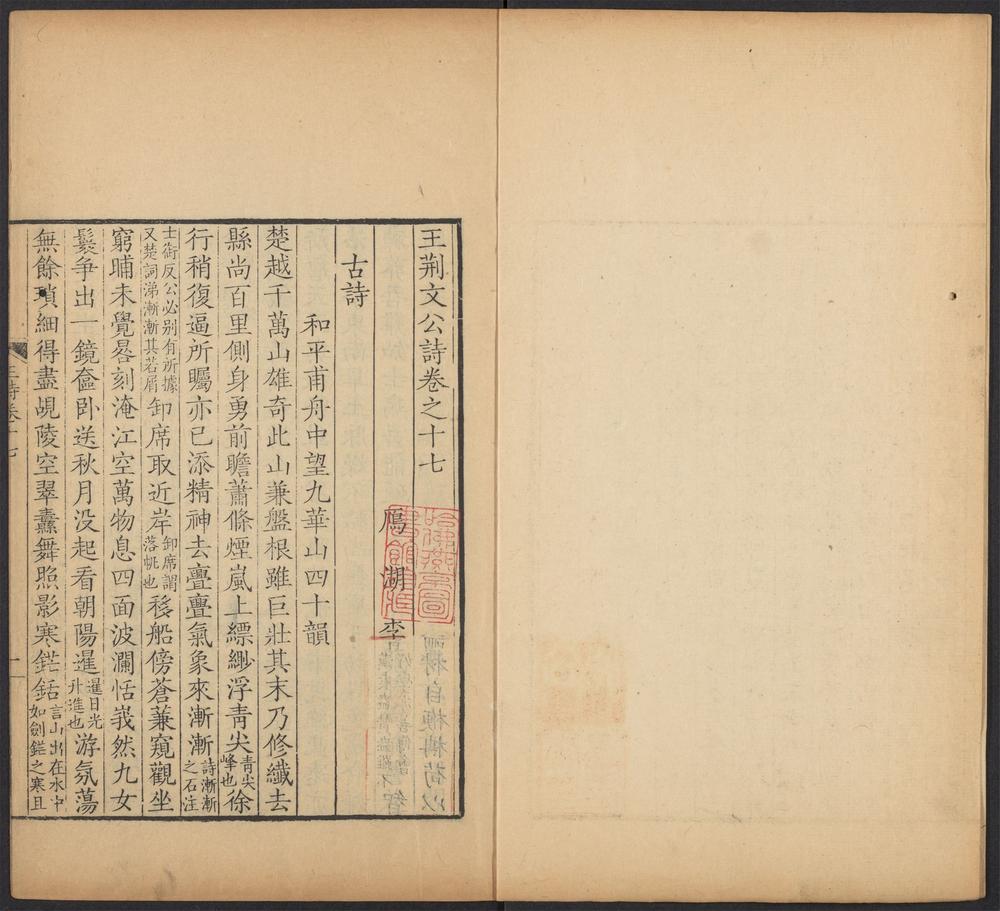 王荆文公詩卷之十七
鴈湖李
哈佛燕京圖
書館
古詩
和平甫舟中望九華山四十韻
楚越千萬山雄奇此山兼盤根雖巨壯其末乃修纖去
縣尚百里側身勇前瞻蕭條煙嵐上縹緲浮青尖青尖峰也徐
行稍復逼所矚亦已添精神去亹亹氣象來漸漸詩漸漸之石注
士銜反公必别有所據又楚詞涕漸漸其若屑卸席取近岸卸席謂落帆也移船傍蒼蒹窺觀坐
窮晡未覺晷刻淹江空萬物息四面波瀾恬峩然九女
鬟爭出一鏡奩卧送秋月没起看朝陽暹暹日光升進也游氛蕩
無餘瑣細得盡覘陵空翠纛舞照影寒鋩銛言山出在水中如劍鋩之寒且